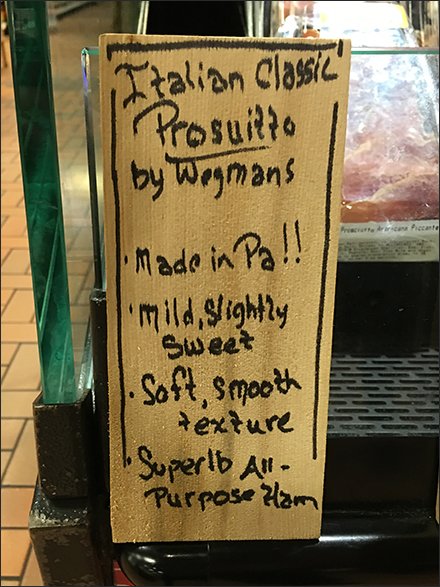 Italian Classic
Prosuitto
by Wegmans
· Made in Pa!!
· Mild, Slightly
Sweet
· Soft, smooth
texture
· Superb All-
Purpose Ham
Prosciutto Arancione Piccante